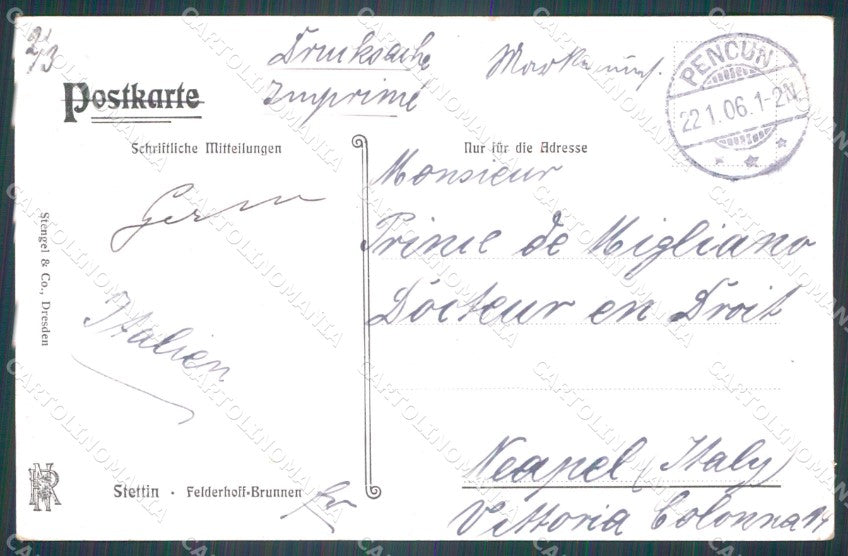 2/3
Drucksache
Imprimé
Marke
PENCUN
22 1.06.1-2N.
Postkarte
Schriftliche Mitteilungen
Nur für die Adresse
Monsieur
Prince de Migliano
Docteur en Droit
Italien
Neapel (Italy)
Vittoria Colonna 14
Stengel & Co., Dresden
Stettin · Felderhoff-Brunnen
CARTOLINOMANIA